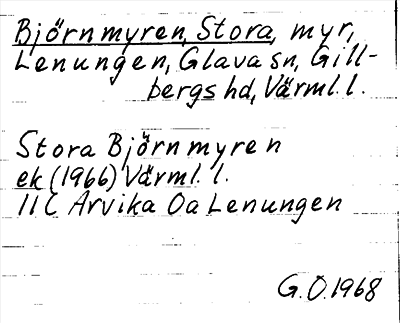 Björnmyren, Stora, myr,
Lenungen, Glava sn, Gill-
bergs hd, Värml. l.
Stora Björnmyren
ek (1966) Värml. l.
11 C Arvika Oa Lenungen
G. O. 1968